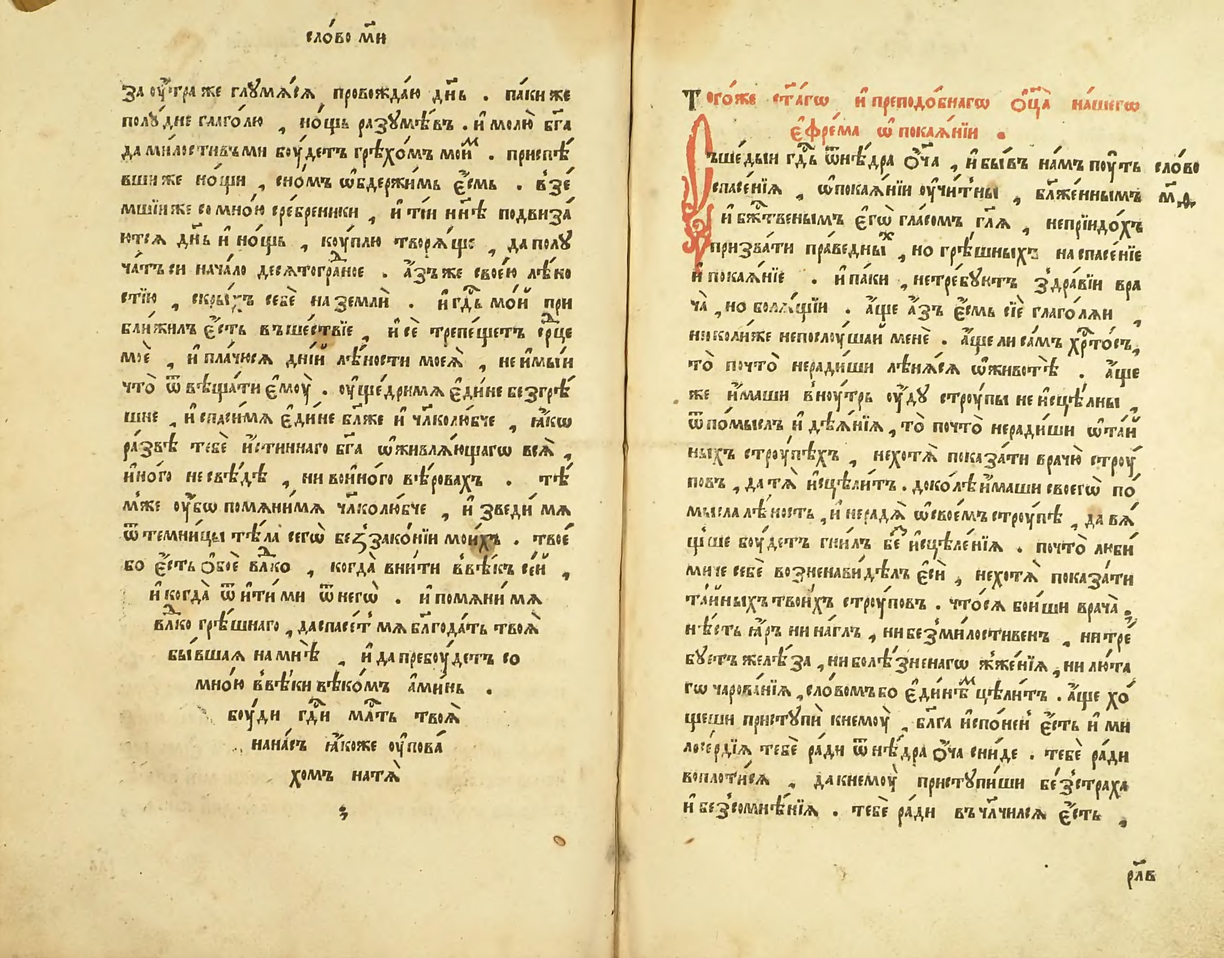 сло́во м҃и
за оу҆́тра же глꙋмѧ́сѧ провожда́ю дн҃ь . па́ки же
полꙋ́ дне глаго́лю , но́щь разꙋмѣ́въ . и҆ молю̀ бг҃а
да ми́лостивъ ми бꙋ́детъ грѣхо́мъ мои҆́м . приспѣ́
вши же но́щи , сно́мъ ѡ҆бдержи́мь є҆́смь . взе́
мшїи же со мно́ю сре́бреники , и҆ ті́и нн҃ѣ подвиза́
ютсѧ дн҃ь и҆ но́щь , кꙋ́плю творѧ́ще , да полꙋ
ча́тъ си нача́ло десѧтогра́дное . а҆́зъ же свое́ю лѣ́но
стїю , скры́хъ себѐ на землѝ . и҆ гд҇ь мо́й при
бли́жилъ є҆́сть въшествїе , и҆ сѐ трепе́щетъ ср҃це
моѐ , и҆ пла́чюсѧ дні́й лѣ́ности моеѧ̀ , не и҆мы́и
что̀ ѿвѣща́ти є҆моꙋ̀ . оу҆ще́дри мѧ є҆ди́не безгрѣ́
шне , и҆ спаси́ мѧ є҆ди́не бл҃же и҆ чл҃колю́бче , ꙗ҆́кѡ
ра́звѣ тебѐ и҆́стиннаго бг҃а ѡ҆живлѧ́ющагѡ всѧ̀ ,
и҆но́го не свѣ́дѣ , ни во и҆но́го вѣ́ровахъ . тѣ́
мже оу҆́бѡ помѧни́ мѧ чл҃колю́бче , и҆ зведи́ мѧ
ѿ темни́цы тѣ́ла сегѡ̀ беззако́нїи мои́хъ . твое́
бо є҆́сть ѻ҆бо́е влⷣко , когда̀ вни́ти в вѣ́къ се́й ,
и҆ когда̀ ѿи́ти ми ѿ негѡ̀ . и҆ помѧни́ мѧ
влⷣко грѣ́шнаго , да спасе́т мѧ бл҃года́ть твоѧ̀
бы́вшаѧ на мнѣ̀ , и҆ да пребоу́детъ со
мно́ю в вѣ́ки вѣко́мъ а҆ми́нь .
боу́ди гд҇и мл҇ть твоѧ̀
на на́съ ꙗ҆́коже оу҆пова́
хомъ на тѧ̀
Того́же ст҃а́гѡ и҆ преподо́бнагѡ ѻ҆ц҃а̀ на́шегѡ
є҆фре́ма ѡ҆ покаѧ́нїи .
Съше́дыи гд҇ь ѿ нѣ́дра ѻ҆́ч҃а , и҆ бы́въ на́мъ поу́ть
спасе́нїѧ , ѡ҆ покаѧ́нїи оу҆чи́т ны̀ , бл҃же́ннымъ
сло́во
м҃ѳ.
и҆ бж҇твенымъ є҆гѡ̀ гла́сомъ гл҃ѧ , не прїидо́хъ
призва́ти пра́ведныⷯ , но грѣ́шныхъ на спасе́нїе
и҆ покаѧ́нїе . и҆ па́ки , не тре́буютъ здра́вїи вра
ча̀ , но болѧ́щїи . а҆́ще а҆́зъ є҆́смь сїѐ глаго́лѧи ,
николи́же не послоу́шаи менѐ . а҆́ще ли са́мъ хрⷭ҇то́съ ,
то̀ почто̀ неради́ши лѣнѧ́сѧ ѡ҆ животѣ̀ . а҆́ще
же и҆́маши в ноу́трь оу҆́дꙋ стро́упы не и҆сцѣ́лны ,
ѿ по́мыслъ и҆ дѣѧ́нїѧ , то̀ почто̀ неради́ши ѡ҆ та́й
ныхъ строу́пѣхъ , не хотѧ̀ показа́ти врачю̀ строу́
повъ , да тѧ̀ и҆сцѣли́тъ . доко́лѣ и҆́маши своегѡ̀ по́
мысла лѣ́ность , и҆ нерадѧ̀ ѡ҆ свое́мъ строу́пѣ , да вѧ́
щїше боу́детъ гни́лъ без и҆сцѣле́нїѧ . почто̀ люби́
миче себѐ возненави́дѣлъ є҆сѝ , не хотѧ̀ показа́ти
та́йныхъ твои́хъ строу́повъ . что́сѧ бои́ши врача̀ .
нѣ́сть ꙗ҆́ръ ни на́глъ , ни безми́лостивенъ , ни тре́
буетъ желѣ́за , ни болѣ́зненагѡ жже́нїѧ , ни лю́та
гѡ чарова́нїѧ , сло́вомъ бо є҆ди́нѣⷨ цѣли́тъ . а҆́ще хо́
щеши пристꙋпѝ к немоу̀ , бл҃га и҆спо́лнен є҆́сть и҆ ми
лосе́рдїѧ тебѐ ра́ди ѿ нѣ́дра ѻ҆́ч҃а сни́де . тебѐ ра́ди
воплоти́сѧ , да к немоу̀ пристꙋ́пиши без стра́ха
и҆ без сомнѣ́нїѧ . тебѐ ра́ди въчл҃чи́лсѧ є҆́сть ,
рл҃в